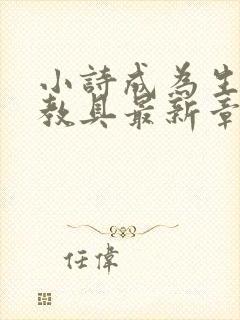 小詩成為生
教具最新章
任偉